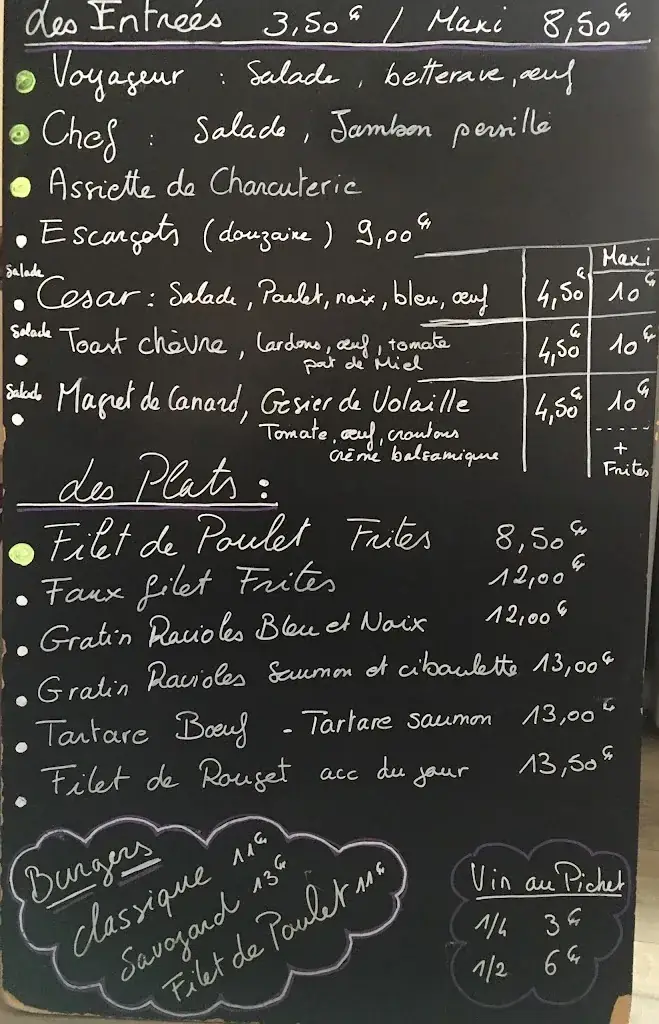 des Entrées 3,50€ / Maxi 8,50€
Voyageur : Salade, betterave, œuf
Chef : Salade, Jambon persillé
Assiette de Charcuterie
Escargots (douzaine) 9,00€
Maxi
Salade Cesar : Salade, Poulet, noix, bleu, œuf 4,50€ 10€
Salade Toast chèvre, lardons, œuf, tomate 4,50€ 10€
pot de Miel
Salade Magret de Canard, Gesier de Volaille 4,50€ 10€
Tomate, œuf, croutons
crème balsamique
+
Frites
des Plats :
Filet de Poulet Frites 8,50€
Faux filet Frites 12,00€
Gratin Ravioles Bleu et Noix 12,00€
Gratin Ravioles Saumon et ciboulette 13,00€
Tartare Bœuf - Tartare saumon 13,00€
Filet de Rouget acc du jour 13,50€
Burgers
Classique 11€
Savoyard 13€
Filet de Poulet 11€
Vin au Pichet
1/4 3€
1/2 6€